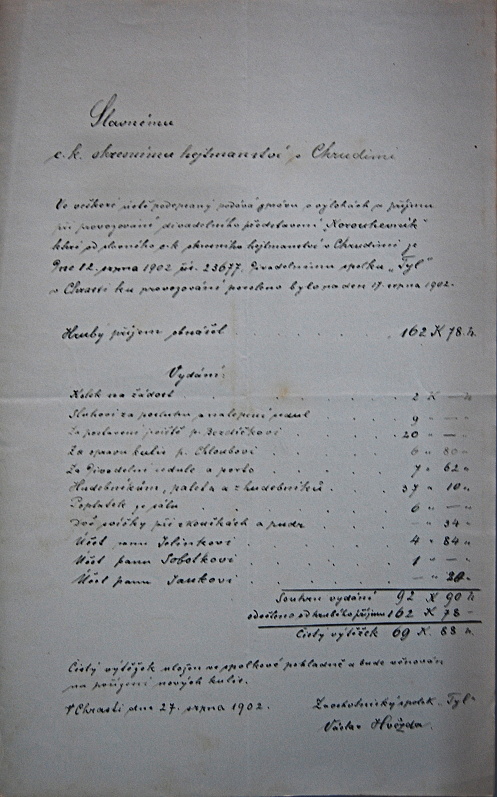 Slavnému
c. k. okresnímu hejtmanství v Chrudimi
Ve veškeré úctě podepsaný podává zprávu o výlohách a příjmu
při provozování divadelního představení „Korouhevník“
které od slavného c. k. okresního hejtmanství v Chrudimi je
Dne 12. srpna 1902 čís. 23677. Divadelnímu spolku „Tyl“
v Chrasti ku provozování povoleno bylo na den 17. srpna 1902.
Hrubý příjem obnášel . . . . . . 162 K 78 h.
Vydání:
Kolek na žádost . . . . 2 K — h
Sluhovi za posluhu a nalepení cedul . . . 9 " — "
Za postavení jeviště p. Bezdíčkovi . . . 20 " — "
Za opravu kulis p. Chloubovi . . . 6 " 80 "
Za Divadelní cedule a porto . . . 7 " 62 "
Hudebníkům, paleta a z hudebníků . . . 37 " 10 "
Poplatek . . . 6 " — "
při zkouškách a pudr . . . — " 34 "
Účet panu Jelínkovi . . . 4 " 84 "
Účet panu Sobotkovi . . . 1 " — "
Účet panu Jankovi . . . — " 20 "
Souhrn vydání 92 K 90 h
odečteno od hrubého příjmu 162 K 78 "
Čistý výtěžek 69 K. 88 h.
Čistý výtěžek uložen ve spolkové pokladně a bude věnován
na pořízení nových kulis.
V Chrasti dne 27. srpna 1902.
Za ochotnický spolek „Tyl“
Václav Hvězda.